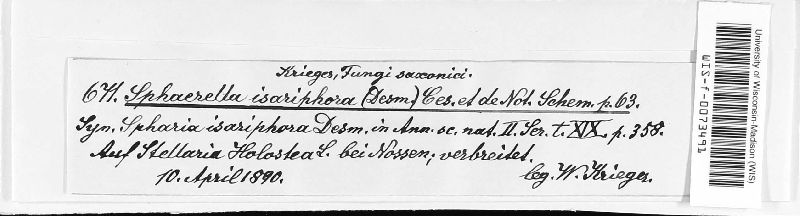 Krieger, Fungi saxonici.
671. Sphaerella isariphora (Desm.) Ces. et de Not. Schem. p. 63.
Syn. Spharia isariphora Desm. in Ann. sc. nat. II. Ser. t. XIX. p. 358.
Auf Stellaria Holostea L. bei Nossen; verbreitet.
10. April 1890.
leg. W. Krieger.
University of Wisconsin-Madison (WIS)
WIS-f-0073491